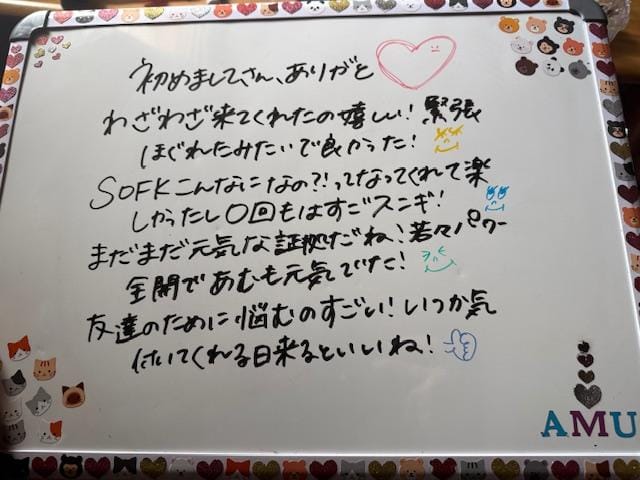 初めましてさん、ありがと
わざわざ来てくれたの嬉しい！緊張
ほぐれたみたいで良かった！
SOFKこんなになの?!ってなってくれて楽
しかったし〇回もはすごスニギ！
まだまだ元気な証拠だね！若々パワー
全開であむも元気でた！
友達のために悩むのすごい！いつか気
付いてくれる日来るといいね！
AMU